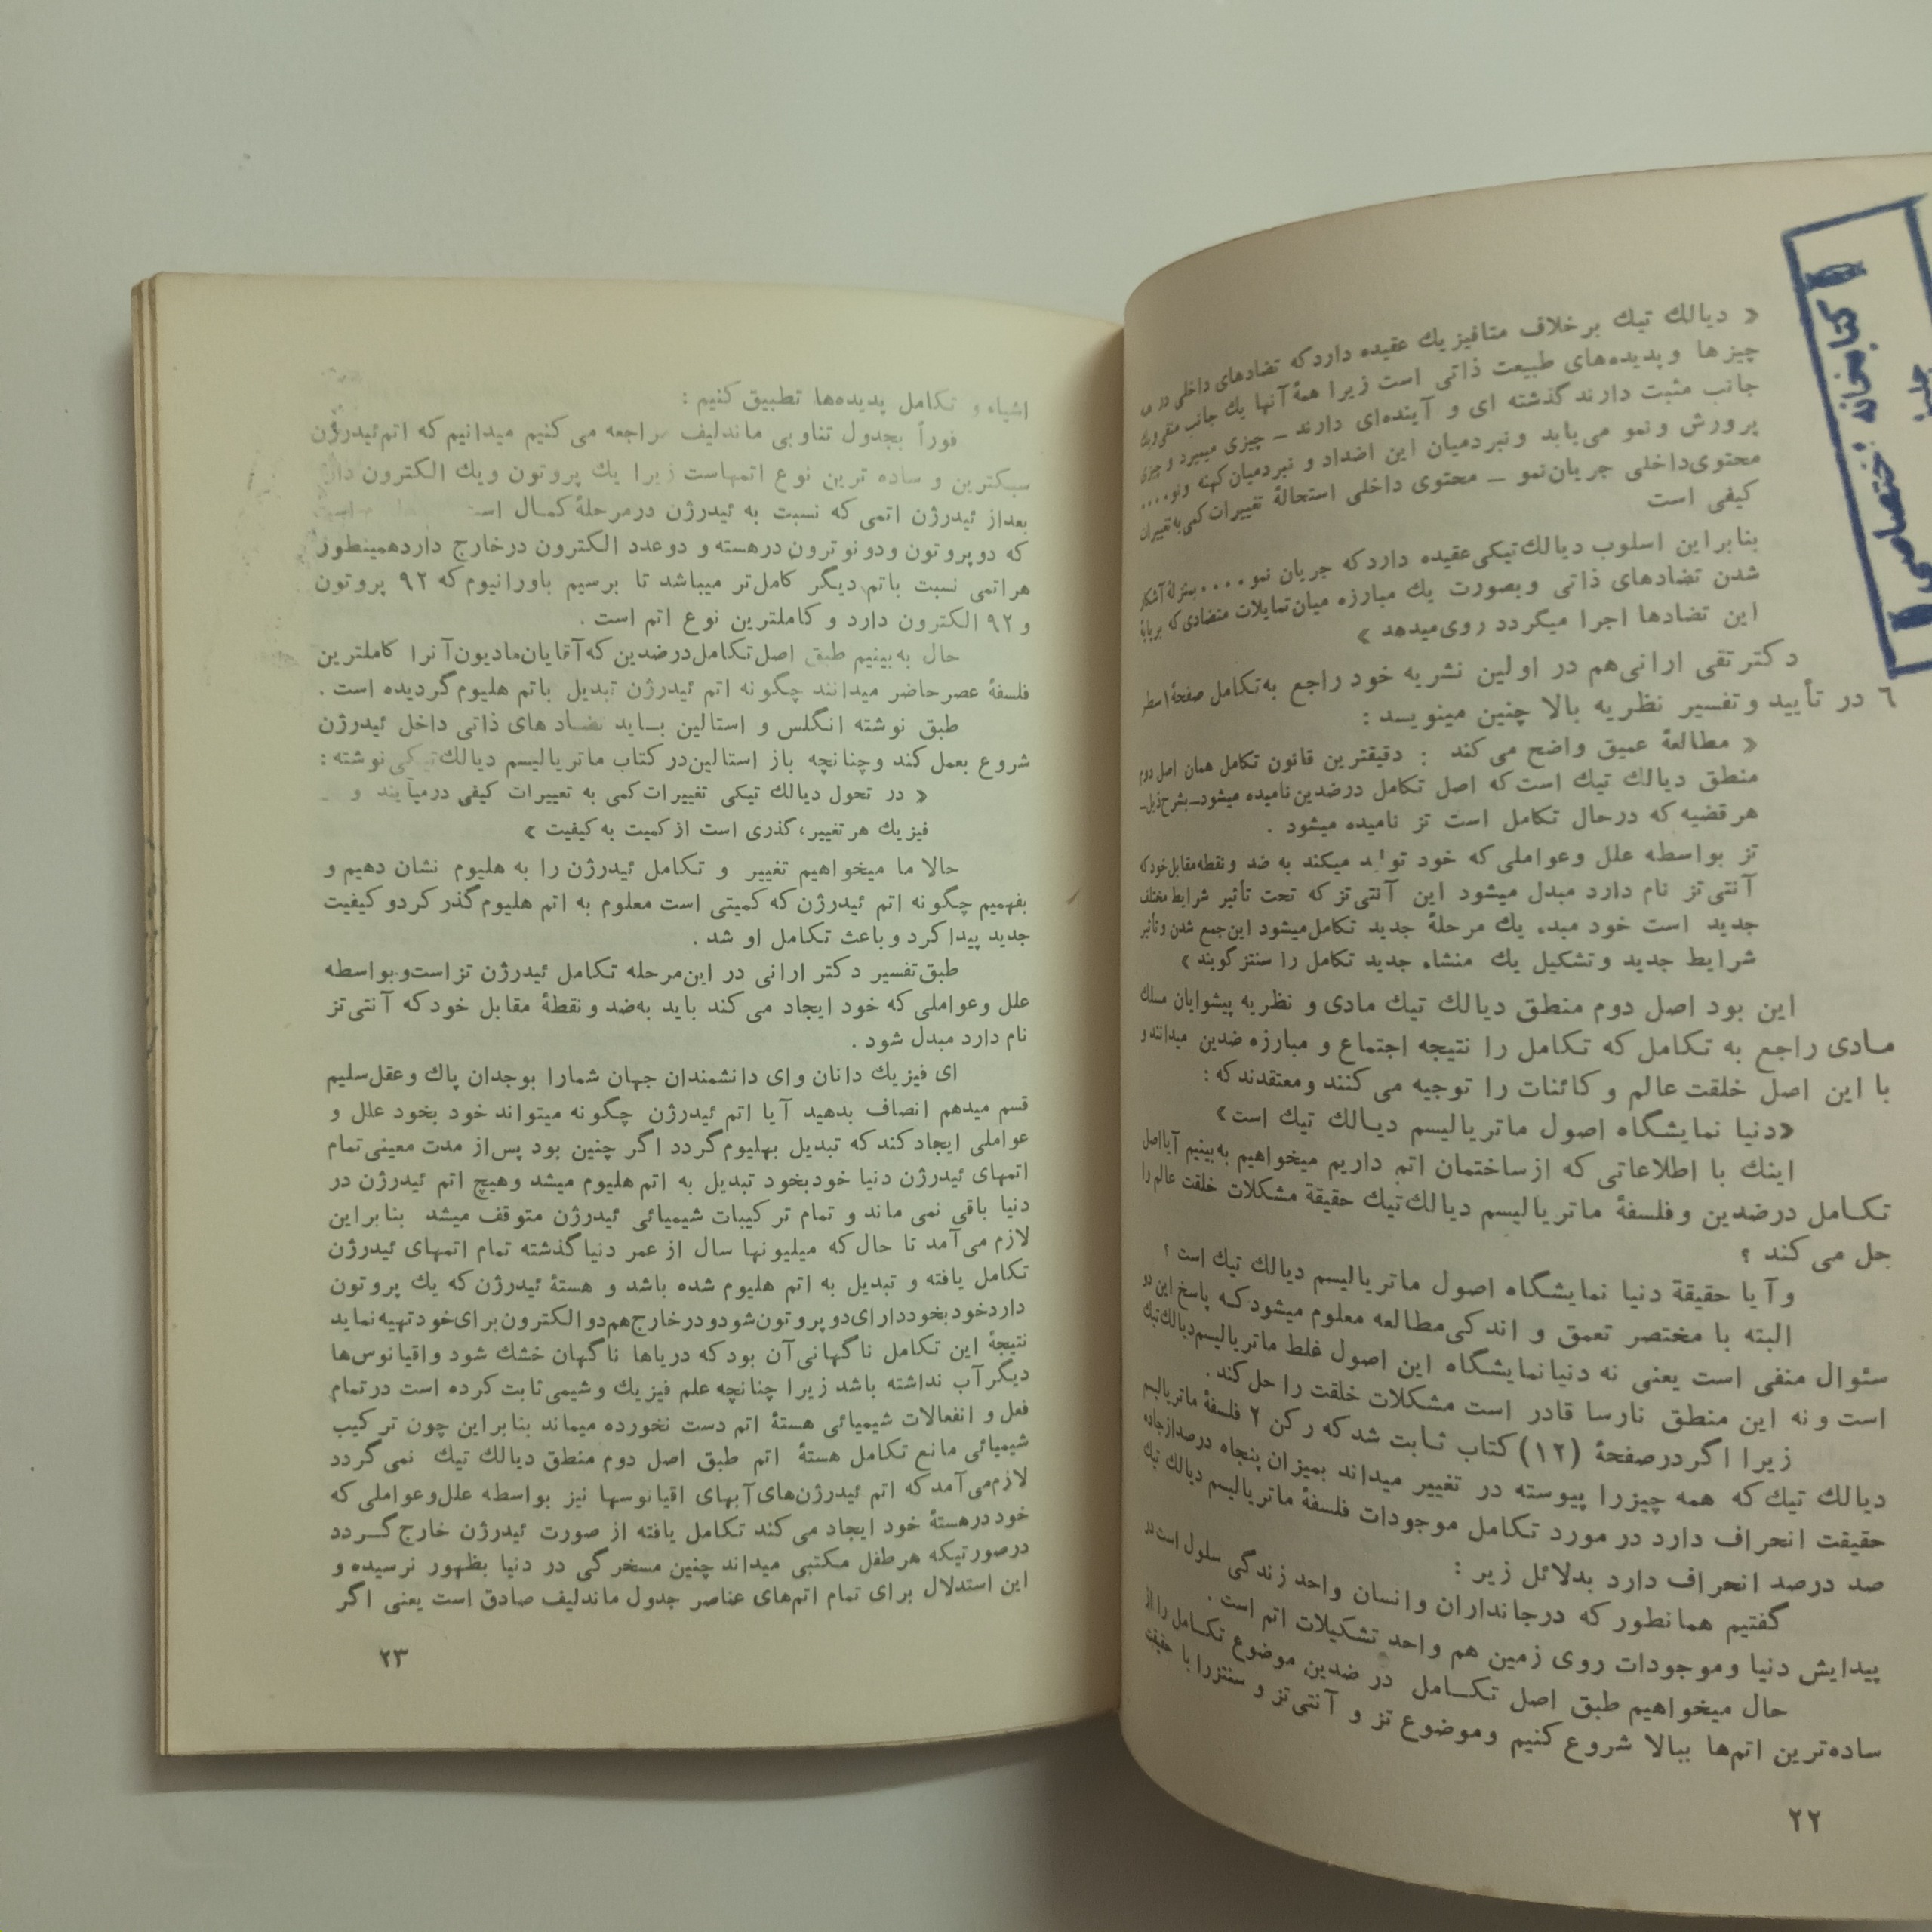 « دیالك تیك برخلاف متافیزیك عقیده دارد که تضادهای داخلی در
چیزها وپدیده‌های طبیعت ذاتی است زیرا همهٔ آنها یك جانب منفی ویك
جانب مثبت دارند گذشته ای و آینده‌ای دارند ــ چیزی میمیرد وچیزی
پرورش ونمو می‌یابد ونبردمیان این اضداد و نبردمیان کهنه ونو....
محتوی‌داخلی جریان‌نمو ــ محتوی داخلی استحالهٔ تغییرات کمی‌به تغییرات
کیفی است
بنابراین اسلوب دیالك‌تیکی‌عقیده داردکه جریان نمو .... بمنزلهٔ آشکار
شدن تضادهای ذاتی وبصورت یك مبارزه میان‌تمایلات متضادی‌که برپایهٔ
این تضادها اجرا میگردد روی‌میدهد »
دکترتقی ارانی‌هم در اولین نشریه خود راجع به‌تکامل صفحهٔ ۱ سطر
٦ در تأیید وتفسیر نظریه بالا چنین مینویسد :
« مطالعهٔ عمیق واضح می‌کند : دقیقترین قانون تکامل همان اصل دوم
منطق دیالك تیك است‌که اصل تکامل درضدین‌نامیده میشود_بشرح‌ذیل_
هرقضیه که درحال تکامل است تز نامیده میشود .
تز بواسطه علل وعواملی‌که خود تولید میکند به ضد ونقطه‌مقابل‌خودکه
آنتی‌تز نام دارد مبدل میشود این آنتی‌تزکه تحت تأثیر شرایط مختلف
جدید است خود مبدء یك مرحلهٔ جدید تکامل‌میشود این‌جمع شدن وتأثیر
شرایط جدید وتشکیل یك منشاء جدید تکامل را سنتز گویند »
این بود اصل دوم منطق دیالك تیك مادی و نظریه پیشوایان مسلك
مـادی راجع به تـکامل‌که تـکامل را نتیجه اجتماع و مبارزه ضدین میدانند و
با این اصل خلقت عالم وکائنات را توجیه می‌کنند ومعتقدندکه :
«دنیا نمایشگاه اصول ماتریالیسم دیـالك تیك است»
اینك با اطلاعاتی که ازساختمان اتم داریم میخواهیم به‌بینیم آیااصل
تکـامل درضدین وفلسفهٔ ماتریالیسم دیالك‌تیك حقیقة مشکلات خلقت عالم را
حل می‌کند ؟
وآیا حقیقة دنیا نمایشگاه اصول ماتریالیسم دیالك تیك است ؟
البته با مختصر تعمق و اندکی‌مطالعه معلوم میشودکـه پاسخ این دو
سئوال منفی است یعنی نه دنیانمایشگاه این اصول غلط ماتریالیسم‌دیالك‌تیك
است ونه این منطق نارسا قادر است مشکلات خلقت را حل‌کند .
زیرا اگردرصفحهٔ (۱۲)کتاب ثـابت شدکه رکن ۲ فلسفهٔ ماتریالیسم
دیالك تیك‌که همه چیزرا پیوسته در تغییر میداند بمیزان پنجاه درصدازجاده
حقیقت انحراف دارد در مورد تکامل موجودات فلسفهٔ ماتریالیسم دیالك تیك
صد درصد انحراف دارد بدلائل زیر :
گفتیم همانطور که درجانداران وانسان واحد زندگی سلول است در
پیدایش دنیا وموجودات روی زمین هم واحد تشکیلات اتم است .
حال میخواهیم طبق اصل تکـامل در ضدین موضوع تکـامل را از
ساده‌ترین اتم‌ها ببالا شروع‌کنیم وموضوع تز و آنتی‌تز و سنتزرا با حقیقت
۲۲
کتابخانه اختصاصی
اشیاء و تکامل پدیده‌ها تطبیق کنیم :
فوراً بجدول تناوبی ماندلیف مراجعه می‌کنیم میدانیم‌که اتم‌ئیدرژن
سبکترین و ساده ترین نوع اتمهاست زیرا یك پروتون ویك الکترون دارد
بعداز ئیدرژن اتمی‌که نسبت به ئیدرژن درمرحلهٔ‌کمـال است
که دوپروتون ودونوترون درهسته و دوعدد الکترون درخارج داردهمینطور
هراتمی نسبت باتم دیگر کامل‌تر میباشد تا برسیم باورانیوم‌که ۹۲ پروتون
و ۹۲ الکترون دارد و کاملترین نوع اتم است .
حال به‌بینیم طبق اصل‌تکامل‌درضدین که‌آقایان‌مادیون‌آنرا کاملترین
فلسفهٔ عصرحاضر میدانند چگونه اتم ئیدرژن تبدیل باتم هلیوم‌گردیده است .
طبق نوشته انگلس و استالین بـاید تضاد های ذاتی داخل ئیدرژن
شروع بعمل‌کند وچنانچه باز استالین‌در کتاب ماتریالیسم دیالك‌تیکی‌نوشته :
« در تحول دیالك تیکی تغییرات‌کمی به تعییرات کیفی درمیآیند و ..
فیزیك هرتغییر، گذری است ازکمیت به کیفیت »
حالا ما میخواهیم تغییر و تکامل ئیدرژن را به هلیوم نشان دهیم و
بفهمیم چگونه اتم ئیدرژن‌که کمیتی است معلوم به اتم هلیوم‌گذرکردو کیفیت
جدید پیداکرد وباعث تکامل او شد .
طبق‌تفسیر دکتر ارانی در این‌مرحله تکامل ئیدرژن تزاست‌وبواسطه
علل وعواملی‌که خود ایجاد می‌کند باید به‌ضد ونقطهٔ مقابل خودکه آنتی‌تز
نام دارد مبدل شود .
ای فیزیك دانان وای دانشمندان جهان شمارا بوجدان پاك وعقل‌سلیم
قسم میدهم انصاف بدهید آیا اتم ئیدرژن چگونه میتواند خود بخود علل و
عواملی ایجادکندکه تبدیل بهلیوم‌گردد اگر چنین بود پس‌از مدت معینی‌تمام
اتمهای ئیدرژن دنیا خودبخود تبدیل به اتم‌هلیوم میشد وهیچ اتم ئیدرژن در
دنیا باقی نمی ماند و تمام ترکیبات شیمیائی ئیدرژن متوقف میشد بنابراین
لازم می‌آمد تا حال‌که میلیونها سال از عمر دنیا گذشته تمام اتمهای ئیدرژن
تکامل یافته و تبدیل به اتم هلیوم شده باشد و هستهٔ ئیدرژن‌که یك پروتون
داردخودبخوددارای‌دوپروتون‌شودودرخارج‌هم‌دوالکترون‌برای‌خودتهیه‌نماید
نتیجهٔ این تکامل ناگهانی‌آن بودکه دریاها ناگهان خشك شود واقیانوس‌ها
دیگرآب نداشته باشد زیرا چنانچه علم فیزیك وشیمی‌ثابت‌کرده است درتمام
فعل و انفعالات شیمیائی هستهٔ اتم دست نخورده میماند بنابراین چون ترکیب
شیمیائی مانع تکامل هستهٔ اتم طبق اصل دوم منطق دیالك تیك نمی‌گردد
لازم‌می‌آمدکه اتم ئیدرژن‌های‌آبهای اقیانوسها نیز بواسطه علل‌وعواملی‌که
خود درهستهٔ خود ایجاد می‌کند تکامل یافته از صورت ئیدرژن خارج گـردد
درصورتیکه هرطفل مکتبی میداند چنین مسخرگی در دنیا بظهور نرسیده و
این استدلال برای تمام اتم‌های عناصر جدول ماندلیف صادق است یعنی اگر
۲۳